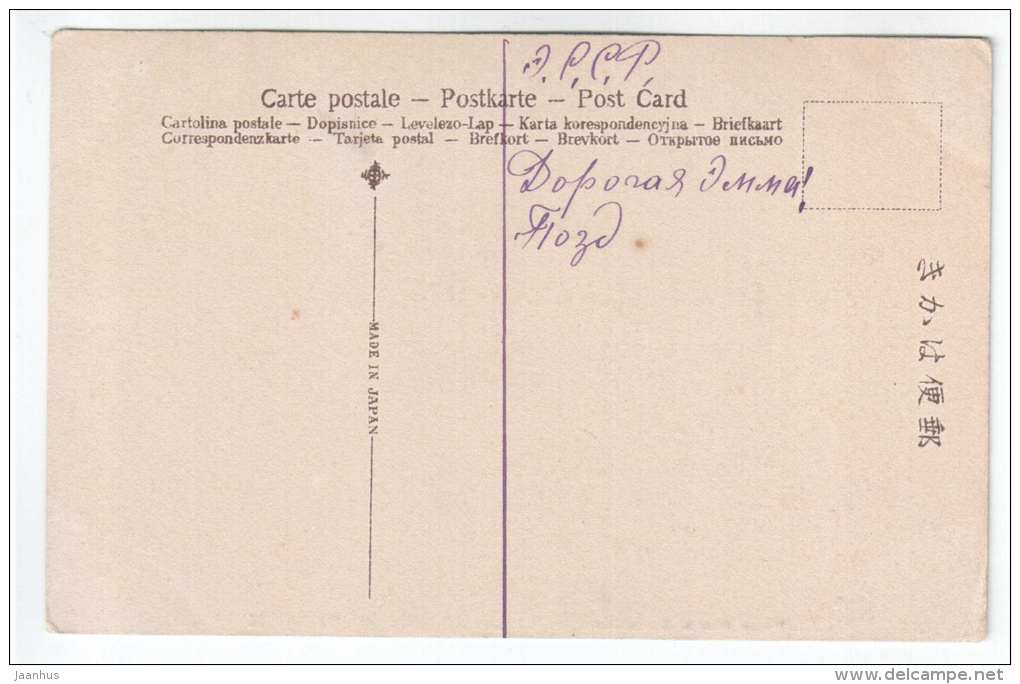 Э.С.С.Р.
Carte postale – Postkarte – Post Card
Cartolina postale – Dopisnice – Levelezo-Lap – Karta korespondencyjna – Briefkaart
Correspondenzkarte – Tarjeta postal – Brefkort – Brevkort – Открытое письмо
Дорогая Эмма!
Позд
MADE IN JAPAN
きかは便郵
jaanhus
delcampe.net